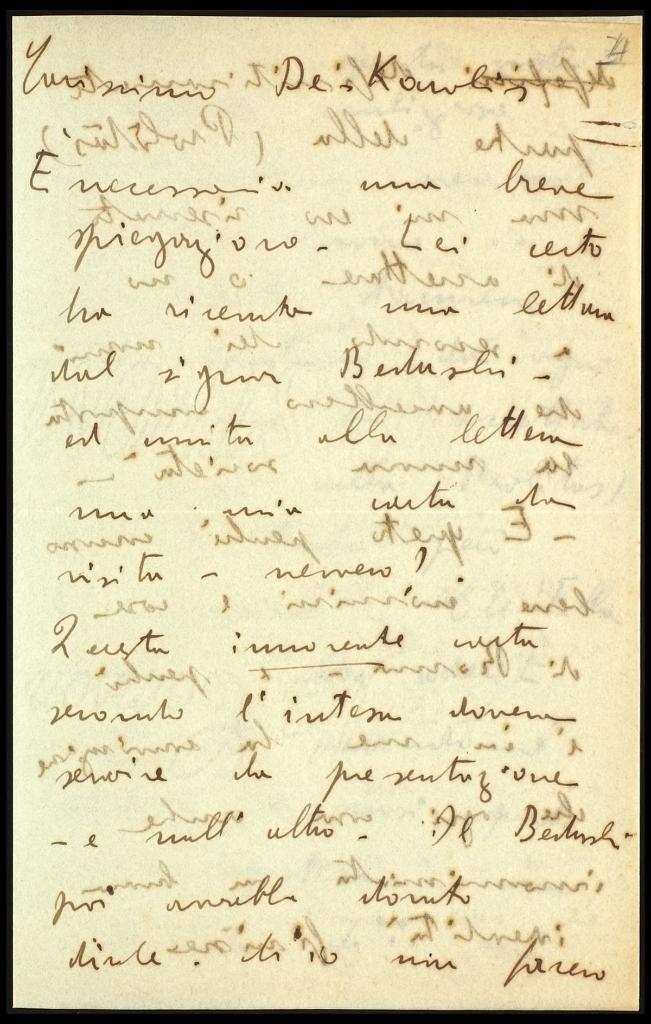 Carissimo De-Karolis
È necessaria una breve
spiegazione - Lei certo
ha ricevuto una lettera
dal signor Beduschi -
ed unita alla lettera
una mia carta da
visita - nevvero?
Questa innocente carta
secondo l'intesa doveva
servire da presentazione
- e null'altro - Il Beduschi
poi avrebbe dovuto
dirle. ch'io non facevo